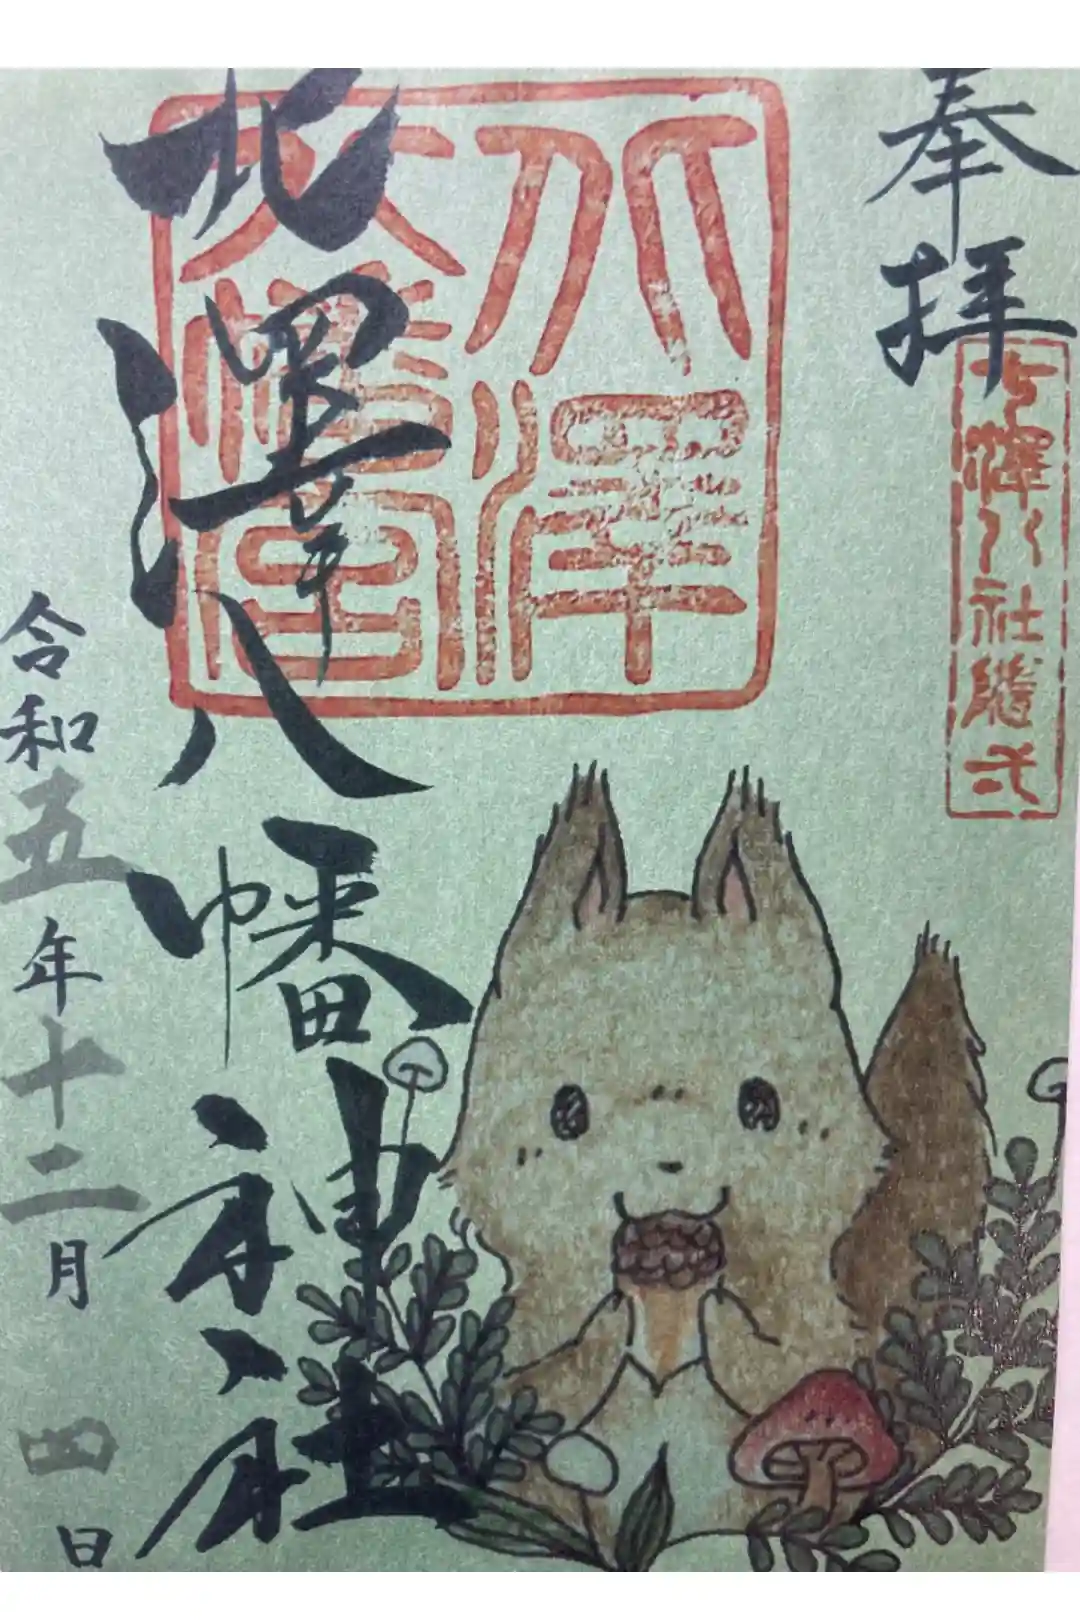 奉拝
七澤八社隨弐
北澤八幡宮
北澤八幡神社
令和五年十二月四日